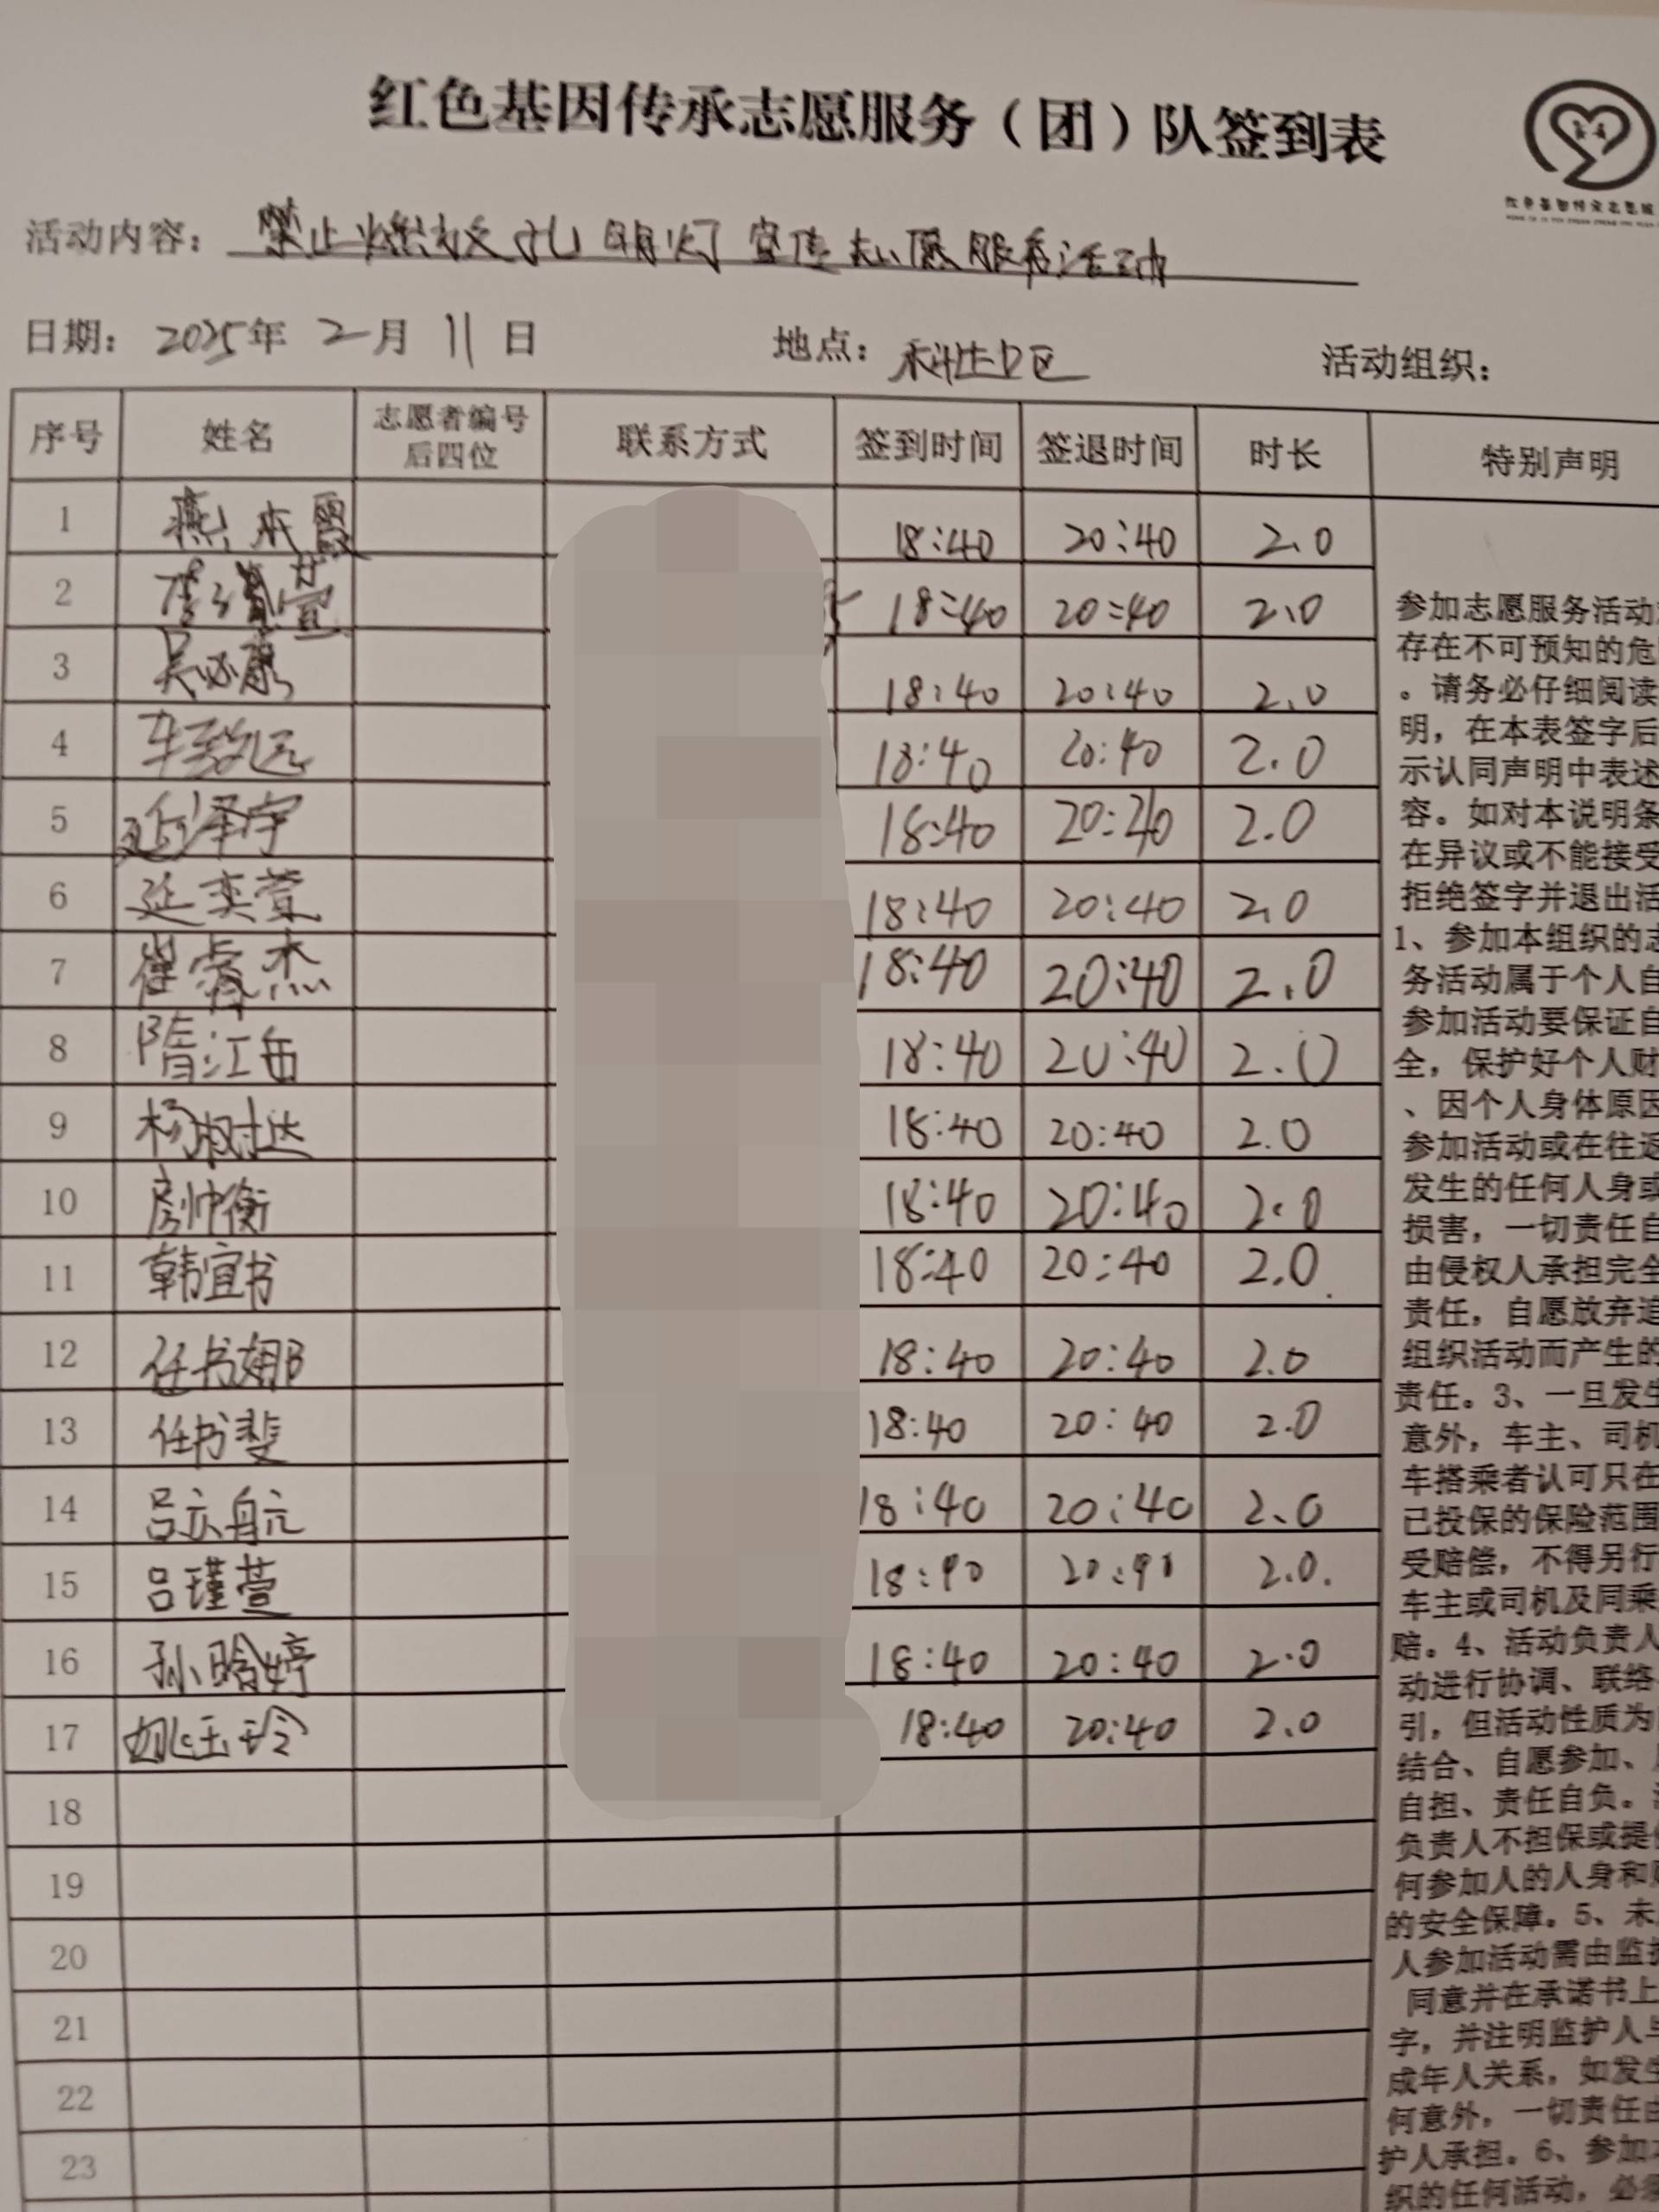 红色基因传承志愿服务（团）队签到表
活动内容：禁止燃放孔明灯宣传志愿服务活动
日期：2025年 2月 11日 地点：社区 活动组织：
序号 姓名 志愿者编号后四位 联系方式 签到时间 签退时间 时长 特别声明
1 18:40 20:40 2.0
2 18:40 20:40 2.0
3 18:40 20:40 2.0
4 车致远 18:40 20:40 2.0
5 延泽宇 18:40 20:40 2.0
6 延奕萱 18:40 20:40 2.0
7 崔睿杰 18:40 20:40 2.0
8 隋江岳 18:40 20:40 2.0
9 杨树达 18:40 20:40 2.0
10 房帅衡 18:40 20:40 2.0
11 韩宜书 18:40 20:40 2.0
12 任书娜 18:40 20:40 2.0
13 任书斐 18:40 20:40 2.0
14 吕亦航 18:40 20:40 2.0
15 吕瑾萱 18:40 20:40 2.0
16 孙晗婷 18:40 20:40 2.0
17 姚玉玲 18:40 20:40 2.0
18
19
20
21
22
23
参加志愿服务活动
存在不可预知的危
。请务必仔细阅读
明，在本表签字后
示认同声明中表述
容。如对本说明条
在异议或不能接受
拒绝签字并退出活
1、参加本组织的志
务活动属于个人自
参加活动要保证自
全，保护好个人财
、因个人身体原因
参加活动或在往返
发生的任何人身或
损害，一切责任自
由侵权人承担完全
责任，自愿放弃追
组织活动而产生的
责任。3、一旦发生
意外，车主、司机
车搭乘者认可只在
已投保的保险范围
受赔偿，不得另行
车主或司机及同乘
赔。4、活动负责人
动进行协调、联络
引，但活动性质为
结合、自愿参加、
自担、责任自负。
负责人不担保或提供
何参加人的人身和
的安全保障。5、未
人参加活动需由监护
同意并在承诺书上
字，并注明监护人与
成年人关系，如发生
何意外，一切责任由
护人承担。6、参加本
织的任何活动，必须